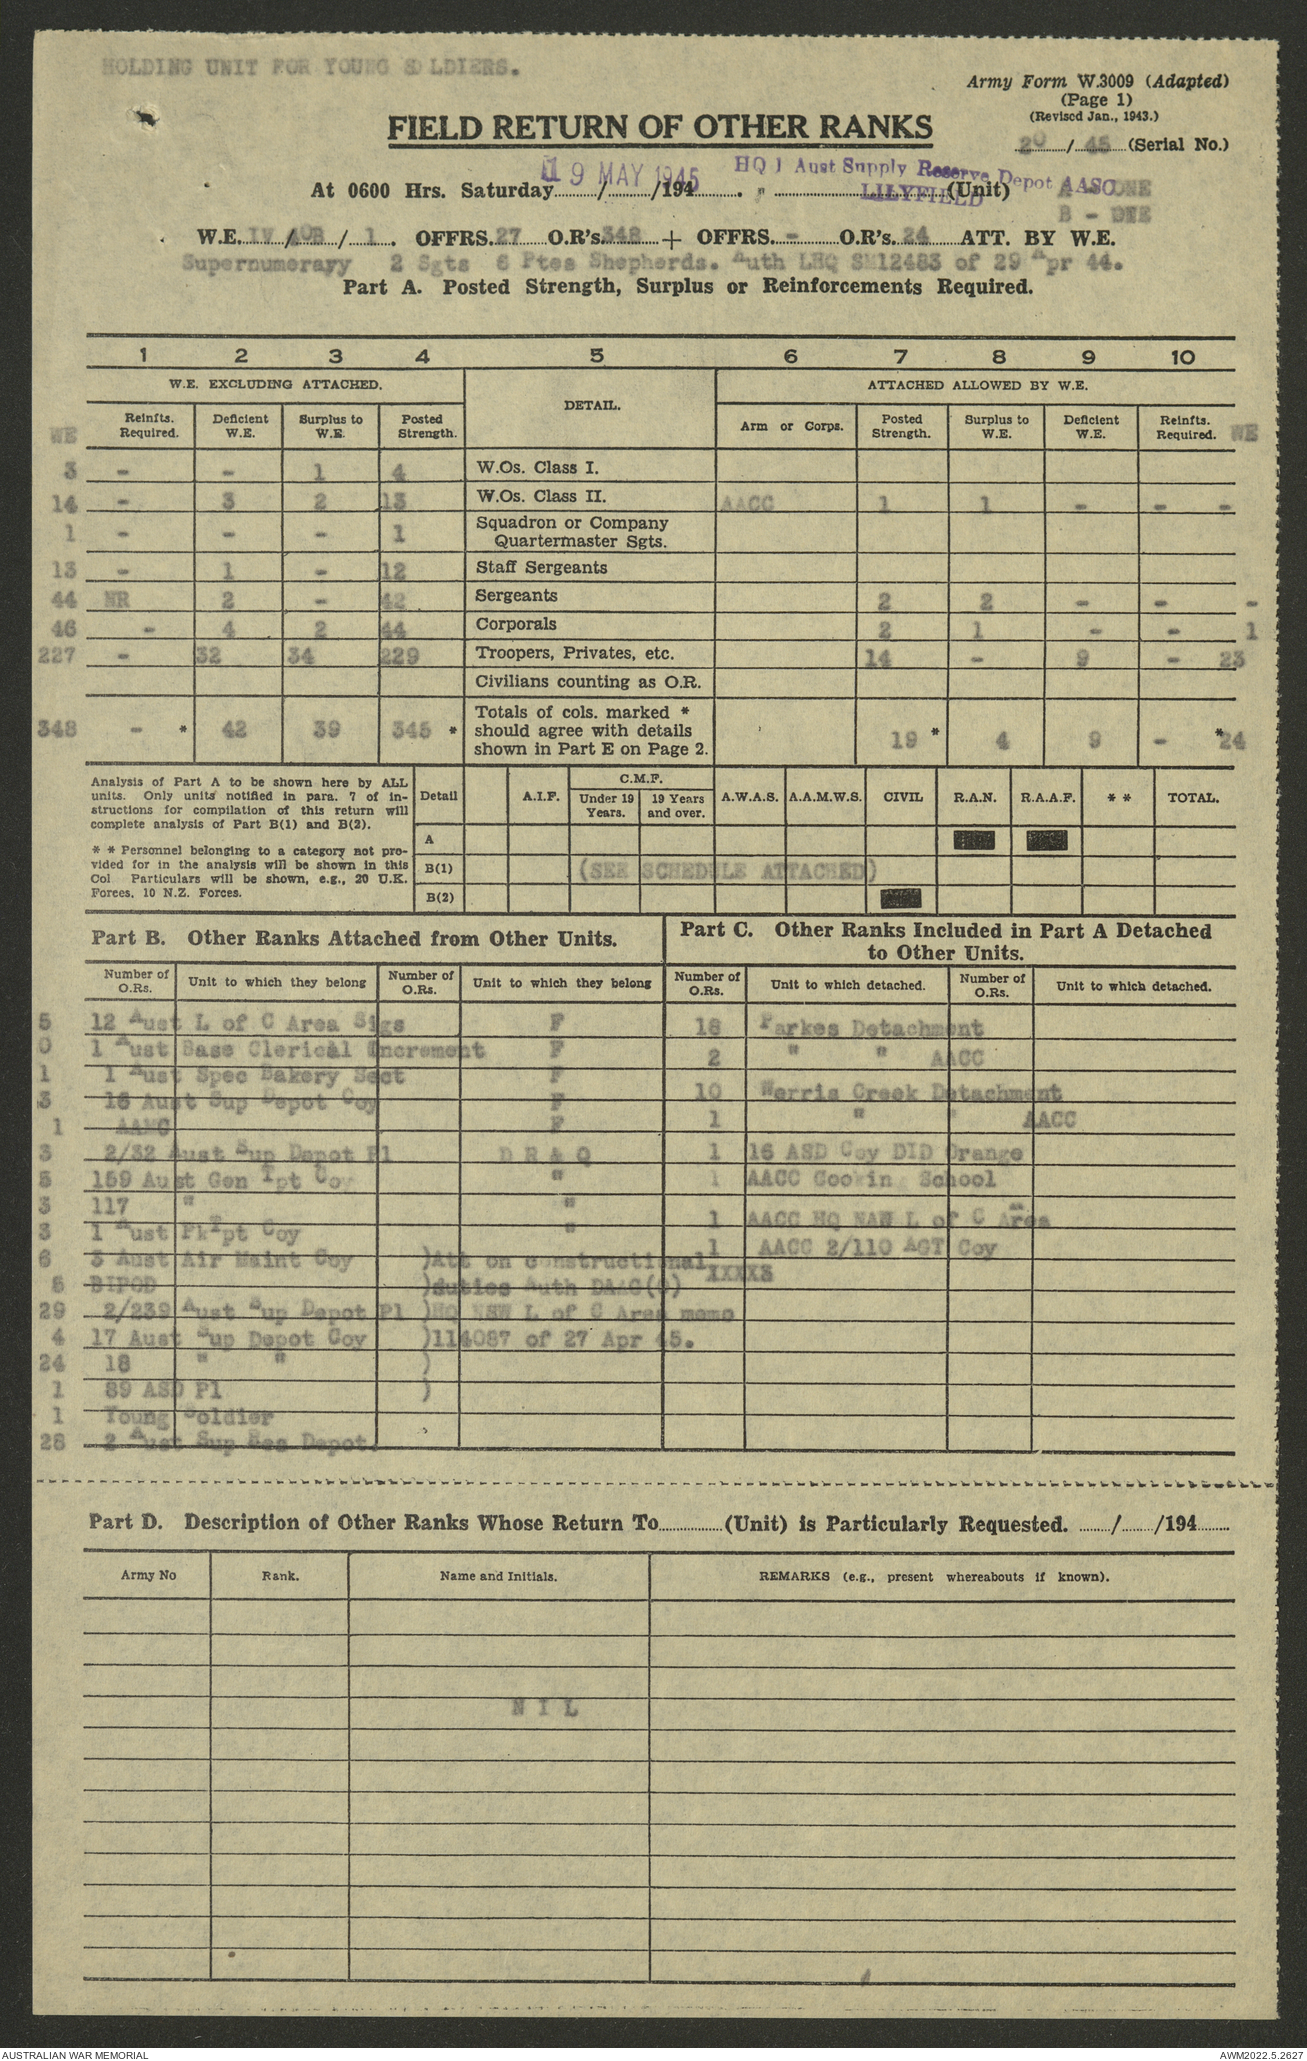 HOLDING UNIT FOR YOUNG SOLDIERS.
Army Form W.3009 (Adapted)
(Page 1)
(Revised Jan., 1943.)
FIELD RETURN OF OTHER RANKS
20 / 45 (Serial No.)
At 0600 Hrs. Saturday 19 MAY 1945 /194 . HQ 1 Aust Supply Reserve Depot AASC LILYFIELD (Unit) A - ONE
B - ONE
W.E. IV / 40B / 1 . OFFRS. 27 O.R's. 348 + OFFRS. - O.R's. 24 ATT. BY W.E.
Supernumerayy 2 Sgts 6 Ptes Shepherds. Auth LHQ SM12483 of 29 Apr 44.
Part A. Posted Strength, Surplus or Reinforcements Required.
1 2 3 4 5 6 7 8 9 10
W.E. EXCLUDING ATTACHED. DETAIL. ATTACHED ALLOWED BY W.E.
WE Reinfts. Required. Deficient W.E. Surplus to W.E. Posted Strength. Arm or Corps. Posted Strength. Surplus to W.E. Deficient W.E. Reinfts. Required. WE
3 - - 1 4 W.Os. Class I.
14 - 3 2 13 W.Os. Class II. AACC 1 1 - - -
1 - - - 1 Squadron or Company Quartermaster Sgts.
13 - 1 - 12 Staff Sergeants
44 NR 2 - 42 Sergeants 2 2 - - -
46 - 4 2 44 Corporals 2 1 - - 1
227 - 32 34 229 Troopers, Privates, etc. 14 - 9 - 23
Civilians counting as O.R.
348 - * 42 39 345 * Totals of cols. marked * should agree with details shown in Part E on Page 2. 19 * 4 9 - * 24
Analysis of Part A to be shown here by ALL
units. Only units notified in para. 7 of in-
structions for compilation of this return will
complete analysis of Part B(1) and B(2).
* * Personnel belonging to a category not pro-
vided for in the analysis will be shown in this
Col Particulars will be shown, e.g., 20 U.K.
Forces, 10 N.Z. Forces.
Detail A.I.F. C.M.F. Under 19 Years. 19 Years and over. A.W.A.S. A.A.M.W.S. CIVIL R.A.N. R.A.A.F. * * TOTAL.
A
B(1) (SEE SCHEDULE ATTACHED)
B(2)
Part B. Other Ranks Attached from Other Units.
Number of O.Rs. Unit to which they belong Number of O.Rs. Unit to which they belong
5 12 Aust L of C Area Sigs F
0 1 Aust Base Clerical Increment F
1 1 Aust Spec Bakery Sect F
3 16 Aust Sup Depot Coy F
1 AAMC F
3 2/32 Aust Sup Depot Pl D R & Q
5 159 Aust Gen Tpt Coy "
3 117 " "
3 1 Aust PkTpt Coy "
6 3 Aust Air Maint Coy )Att on constructional
5 BIPOD )duties Auth DAAG(O)
29 2/239 Aust Sup Depot Pl )HQ NSW L of C Area memo
4 17 Aust Sup Depot Coy )114087 of 27 Apr 45.
24 18 " " )
1 89 ASD Pl )
1 Young Soldier
28 2 Aust Sup Res Depot.
Part C. Other Ranks Included in Part A Detached
to Other Units.
Number of O.Rs. Unit to which detached. Number of O.Rs. Unit to which detached.
18 Parkes Detachment
2 " " AACC
10 Werris Creek Detachment
1 " " AACC
1 16 ASD Coy DID Orange
1 AACC Cooking School
1 AACC HQ NAW L of C Area
1 AACC 2/110 AGT Coy
XXXX3
Part D. Description of Other Ranks Whose Return To (Unit) is Particularly Requested. / /194
Army No Rank. Name and Initials. REMARKS (e.g., present whereabouts if known).
N I L
AUSTRALIAN WAR MEMORIAL
AWM2022.5.2627